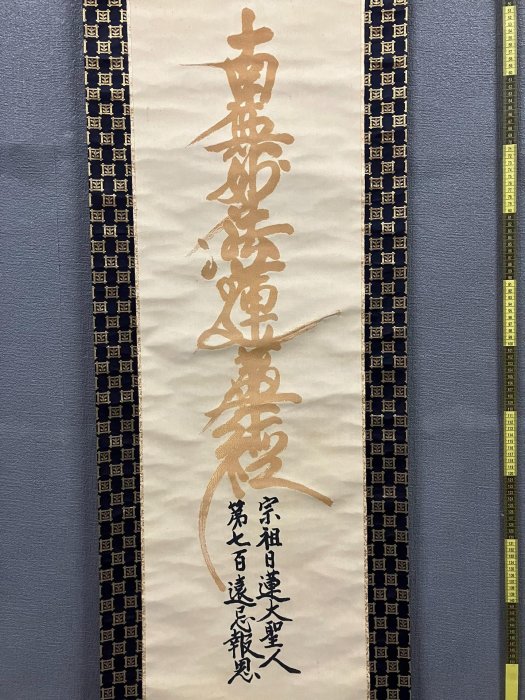 南無妙法蓮華經
宗祖日蓮大聖人
第七百遠忌報恩